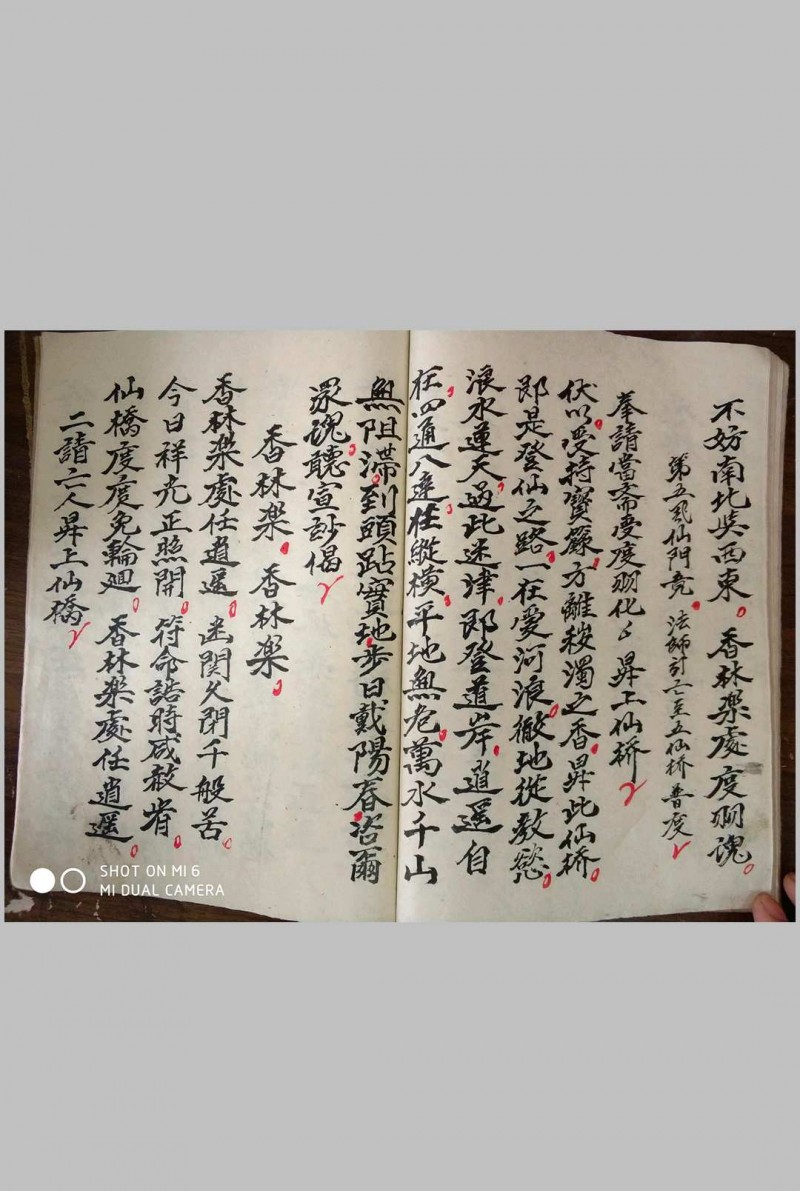 不妨南北與西東 香林樂處度羽魂
第五㷠仙門竟 法師引亡至五仙橋普度
奉請當斋受度羽化々昇上仙桥
伏以受持寶籙方離秽濁之香昇此仙桥
即是登仙之路一在愛河浪徹地從教慾
浪水連天過此迷津即登道岸逍遥自
在四通八逹任縱橫平地無危萬水千山
無阻滯到頭跕實地步日戴陽春咨爾
眾魂聽宣玅偈
香林楽香林楽
香林楽處任逍遥 幽関久閉千般苦
今日祥光正照開 符命誥時咸赦宥
仙橋度度免輪廻 香林楽處任逍遥
二請亡人昇上仙橋
SHOT ON MI 6
MI DUAL CAMERA